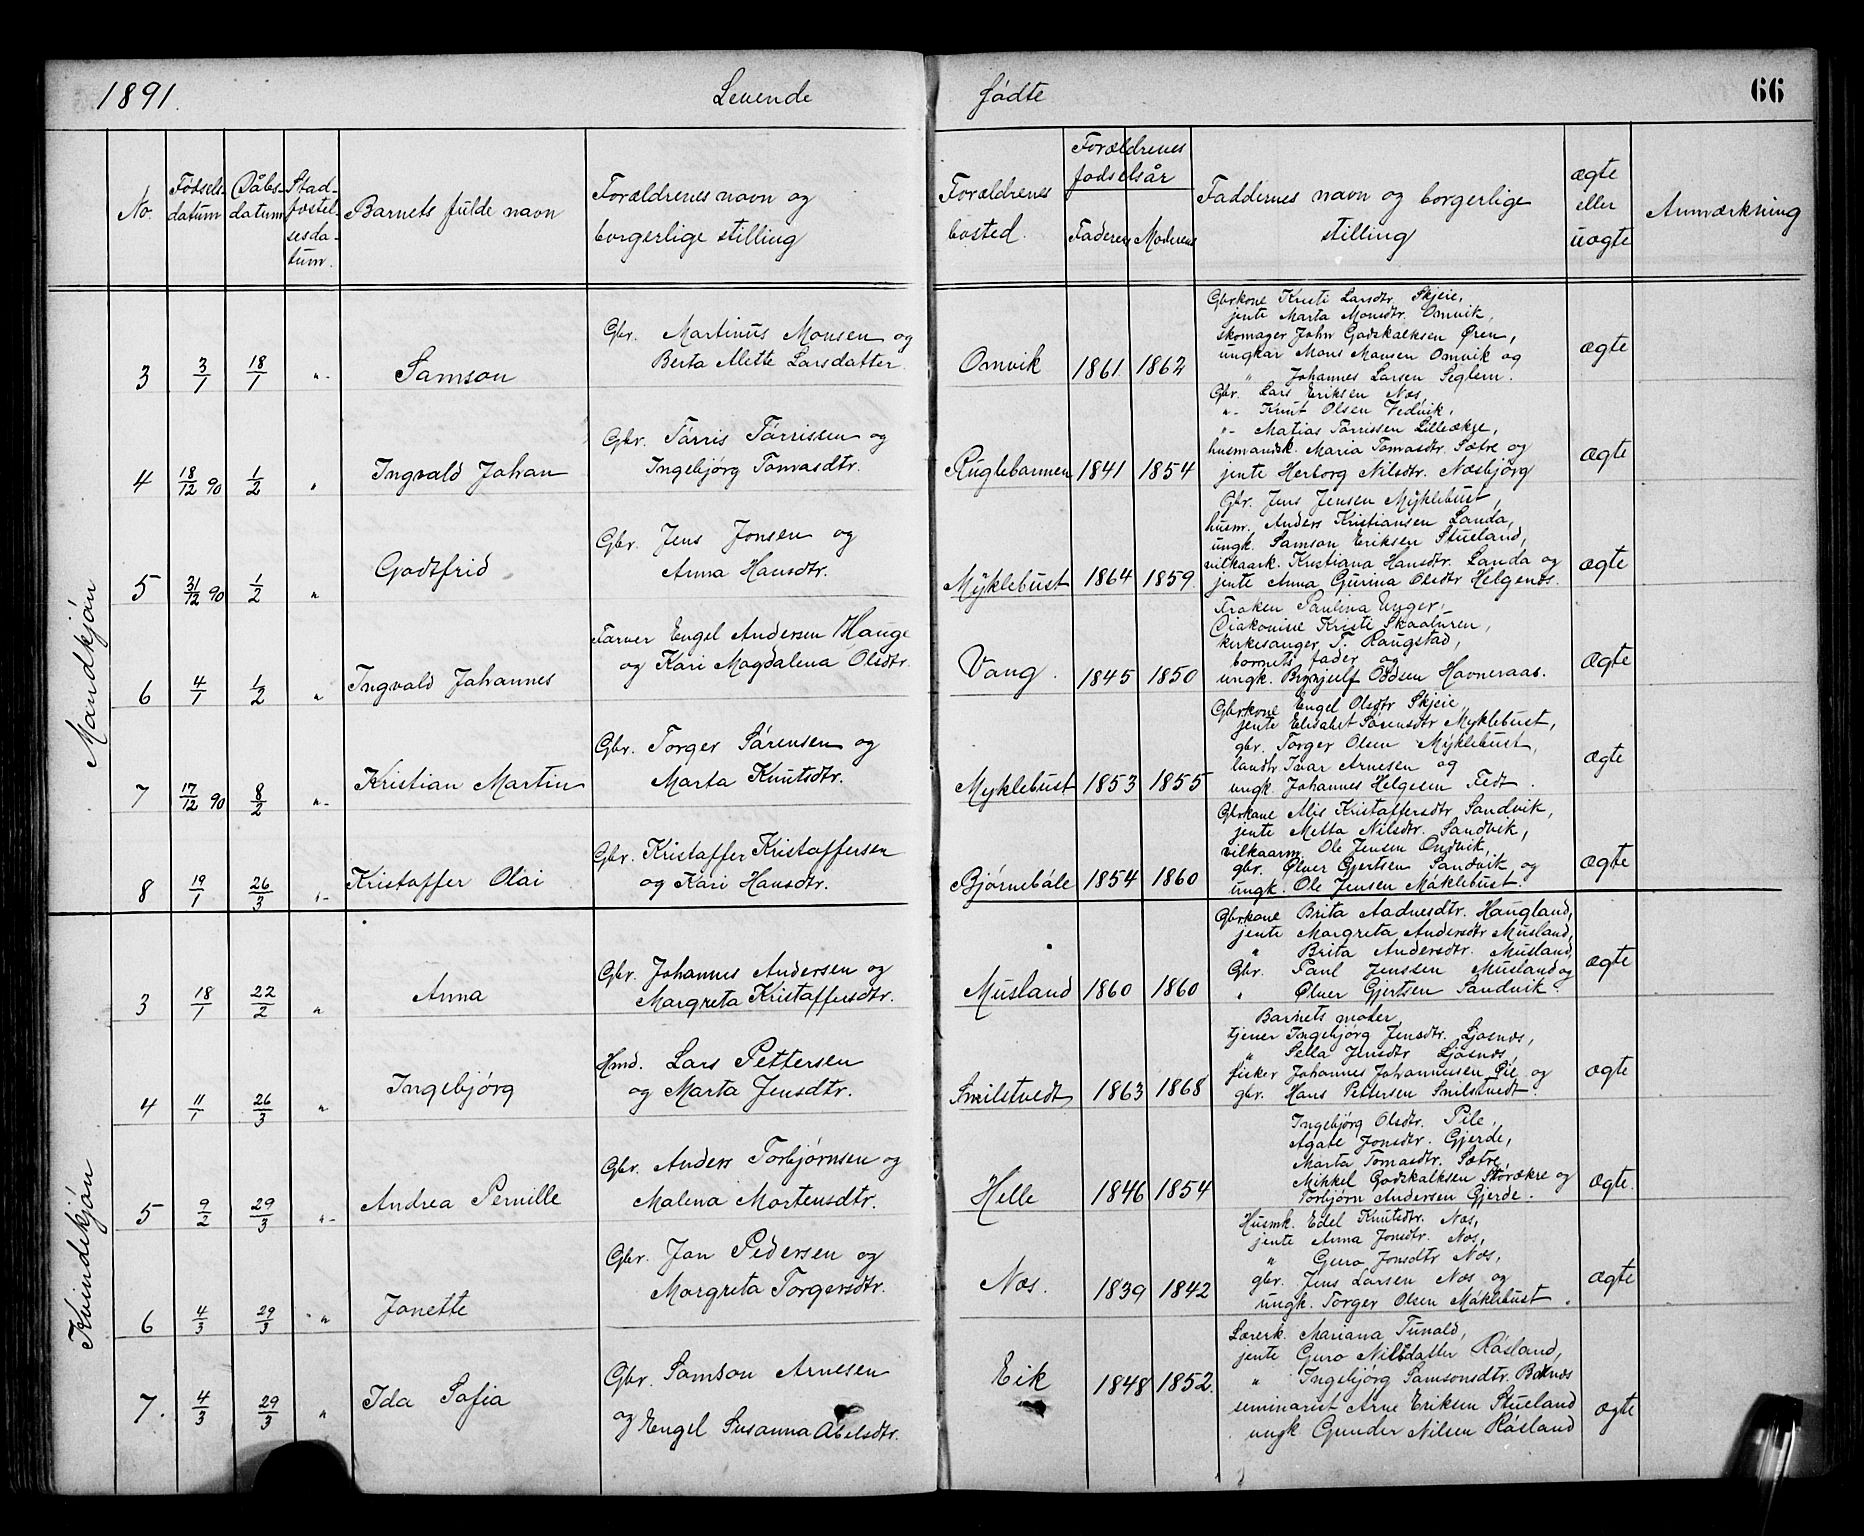 1891. Levende fødte 66
No. Fødsels- datum Dåbs- datum Stad- fæstel- sesda- tum. Barnets fulde navn Forældrenes navn og borgerlige stilling Forældrenes bosted. Forældrenes fødselsår Faderens Moderens Faddernes navn og borgerlige stilling ægte eller uægte Anmærkning
Mandkjøn
3 3/1 18/1 " Samson
Gbr. Martinus Monsen og
Berta Mette Larsdatter.
Omvik 1861 1862
Gbrkone Kristi Larsdtr. Skjeie,
jente Marta Monsdtr. Omvik,
skomager John Godskalksen Øren,
ungkar Mons Monsen Omvik og
" Johannes Larsen Seglem.
ægte
4 18/12 90 1/2 " Ingvald Johan
Gbr. Tørris Tørrissen og
Ingebjørg Tomasdtr.
Ruglebarmen 1841 1854
Gbr. Lars Eriksen Næs,
"- Knut Olsen Vedvik,
"- Matias Tørrissen Lilleækre,
husmandsk. Maria Tomasdtr. Sætre og
jente Herborg Nilsdtr. Næsbjørg
ægte
5 31/12 90 1/2 " Godtfrid
Gbr. Jens Jonsen og
Anna Hansdtr.
Myklebust 1864 1859
Gbr. Jens Jensen Myklebust,
husm. Anders Kristiansen Landa,
ungk. Samson Eriksen Stueland,
vilkaark. Kristiana Hansdtr. Landa og
jente Anna Gurina Olsdtr Helgenæs.
ægte
6 4/1 1/2 " Ingvald Johannes
Farver Engel Andersen Hauge
og Kari Magdalena Olsdtr.
Vang. 1845 1850
Frøken Paulina Unger,
Diakonisse Kristi Skaaluren,
kirkesanger T. Raugstad,
barnets fader og
ungk. Brynjulf Oddsen Havneraas.
ægte
7 17/12 90 8/2 "- Kristian Martin
Gbr. Torger Sørensen og
Marta Knutsdtr.
Myklebust 1853 1855
Gbrkone Engel Olsdtr Skjeie,
jente Elisabet Sørensdtr Myklebust,
gbr. Torger Olsen Myklebust,
landhr Ivar Arnesen og
ungk. Johannes Helgesen Fedt.
ægte
8 19/1 26/3 "- Kristoffer Olai
Gbr. Kristoffer Kristoffersen
og Kari Hansdtr.
Bjørnebåle 1854 1860
Gbrkone Alis Kristoffersdtr Sandvik,
jente Metta Nilsdtr. Sandvik,
vilkaarm Ole Jensen Ondvik,
gbr. Ølver Gjertsen Sandvik og
ungk. Ole Jensen Møklebust.
ægte
Kvindekjøn
3 18/1 22/2 " Anna
Gbr. Johannes Andersen og
Margreta Kristoffersdtr.
Musland 1860 1860
Gbrkone Brita Aadnesdtr. Haugland,
jente Margreta Andersdtr Musland,
" Brita Andersdtr. Musland,
Gbr. Paul Jenssen Musland og
" Ølver Gjertsen Sandvik.
ægte
4 11/1 26/3 " Ingebjørg
Hmd. Lars Pettersen
og Marta Jensdtr.
Smilstvedt 1863 1868
Barnets moder,
tjener Ingebjørg Jensdtr. Ljosnæs,
" Sella Jensdtr Ljosnæs,
fisker Johannes Johannessen Pie og
gbr. Hans Pettersen Smilstvedt.
ægte
5 9/2 29/3 "- Andrea Pernille
Gbr. Anders Torbjørnsen og
Malena Mortensdtr.
Helle 1846 1854
Ingebjørg Olsdtr. Pile,
Agate Jonsdtr. Gjerde,
Marta Tomasdtr. Sætre
Mikkel Godskalksen Storækre og
Torbjørn Andersen Gjerde.
ægte.
6 4/3 29/3 " Jonette
Gbr. Jon Pedersen og
Margreta Torgersdtr.
Næs. 1839 1842
Husmk. Edel Knutsdtr. Næs,
jente Anna Jonsdtr. Næs,
" Guro Jonsdtr Næs,
gbr. Jens Larsen Næs og
ungk. Torger Olsen Møklebust.
ægte
7. 4/3 29/3 " Ida Sofia
Gbr. Samson Arnesen
og Engel Susanna Abelsdtr.
Eik 1848 1852.
Lærerk. Mariana Tunald,
jente Guro Nilsdatter Røsland,
" Ingebjørg Samsonsdtr. Boknæs
seminarist Arne Eriksen Stueland
ungk Gunder Nilsen Røsland
ægte